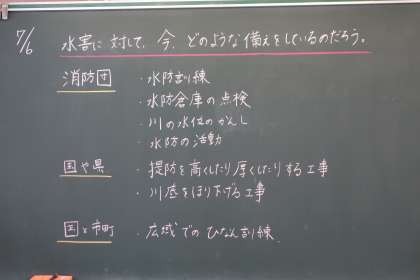 7/6 水害に対して、今、どのような備えをしているのだろう。
消防団 ・水防訓練
・水防倉庫の点検
・川の水位のかんし
・水防の活動
国や県 ・堤防を高くしたり厚くしたりする工事
・川底をほり下げる工事
国と市町 ・広域でのひなん訓練